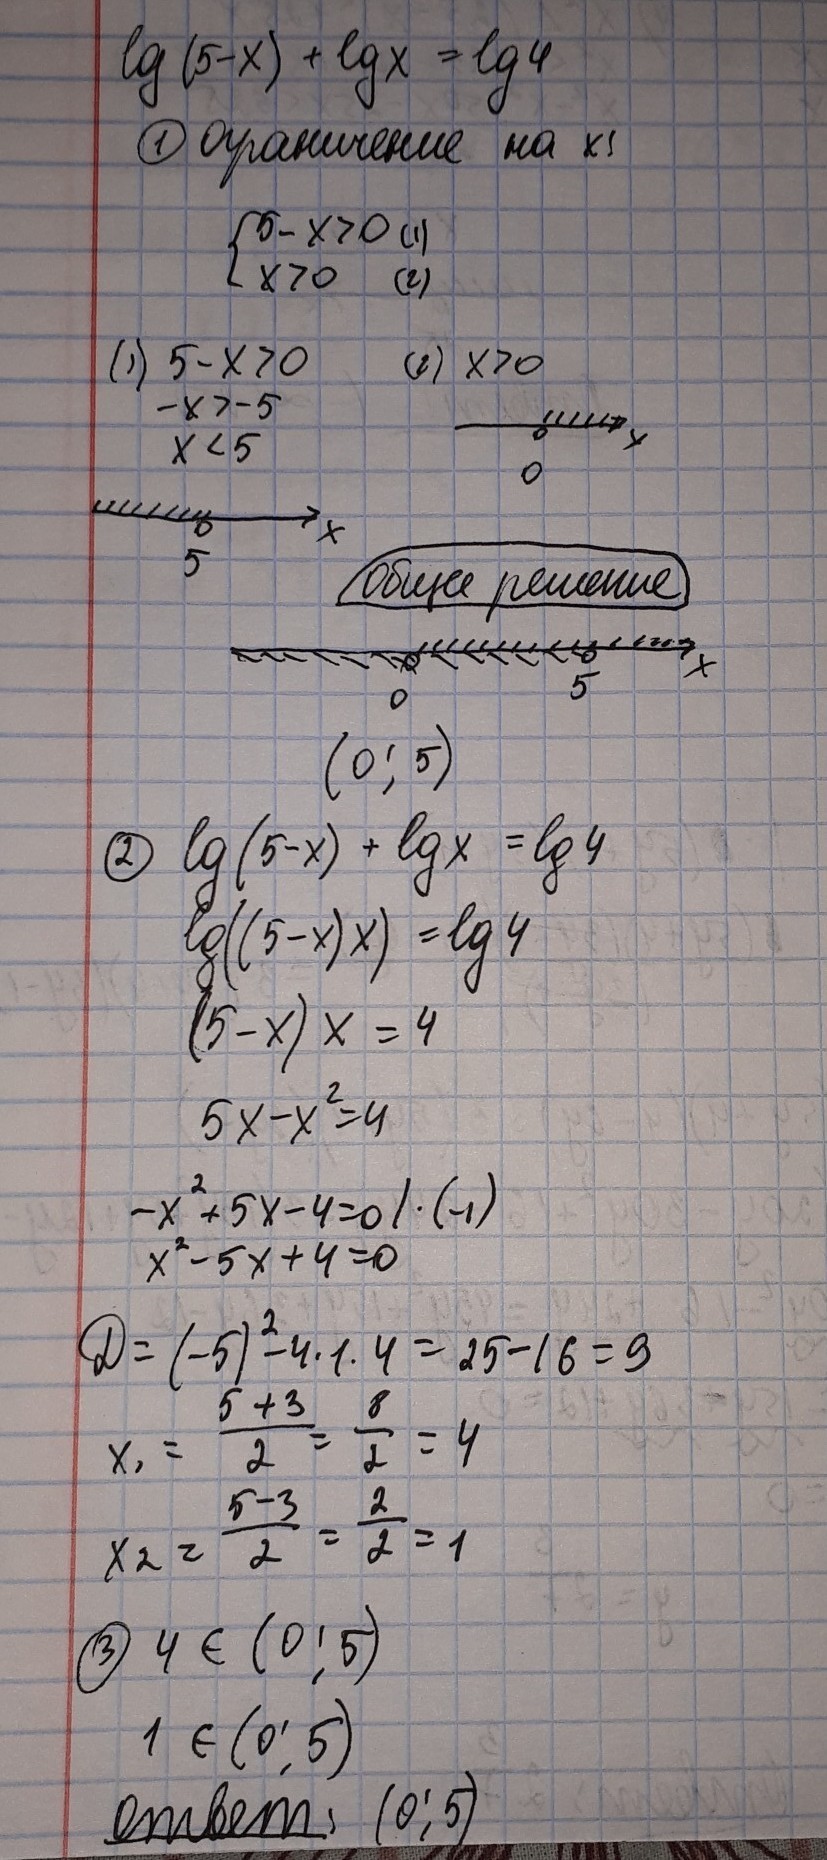 lg(5-x) + lgx = lg4
① ограничение на x:
{5-x>0 (1)
x>0 (2)
(1) 5-x>0 (2) x>0
-x>-5
x<5
x
0
x
5
Общее решение
x
0 5
(0; 5)
② lg(5-x) + lgx = lg4
lg((5-x)x) = lg4
(5-x)x = 4
5x-x²=4
-x²+5x-4=0 /·(-1)
x²-5x+4=0
D = (-5)²-4·1·4 = 25-16=9
x₁ = (5+3)/2 = 8/2 = 4
x₂ = (5-3)/2 = 2/2 = 1
③ 4 ∈ (0; 5)
1 ∈ (0; 5)
ответ: (0; 5)